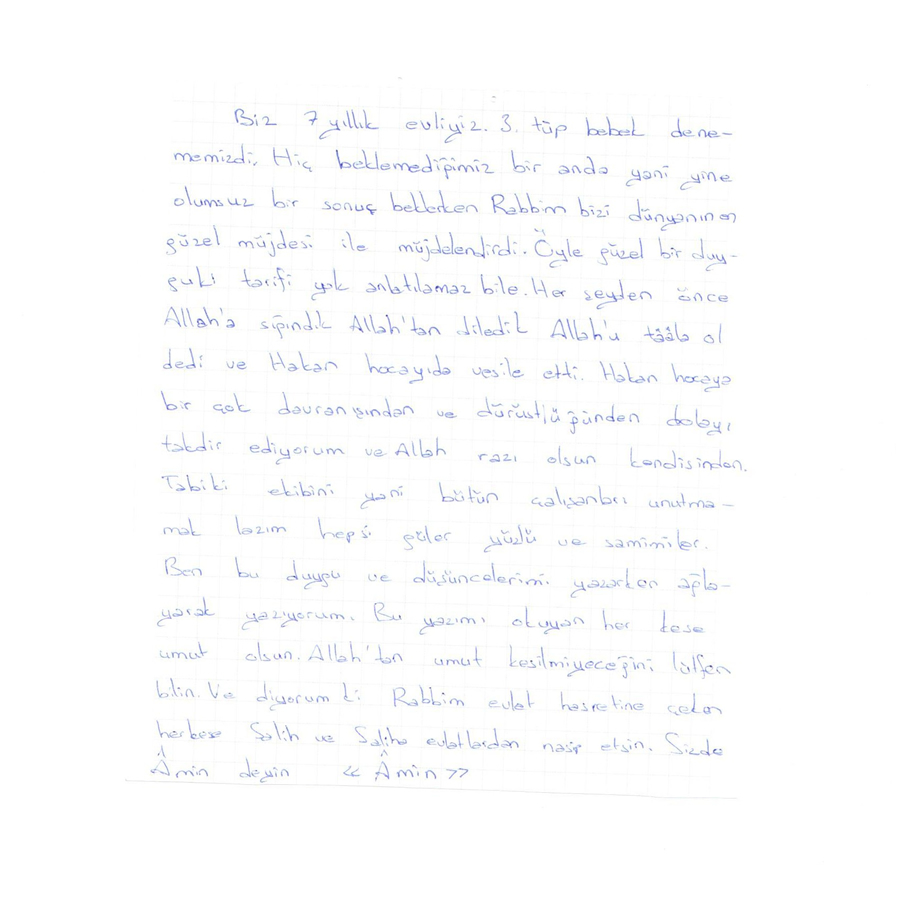 Biz 7 yıllık evliyiz. 3. tüp bebek dene-
memizdi. Hiç beklemediğimiz bir anda yani yine
olumsuz bir sonuç beklerken Rabbim bizi dünyanın en
güzel müjdesi ile müjdelendirdi. Öyle güzel bir duy-
guki tarifi yok anlatılamaz bile. Her şeyden önce
Allah'a sığındık Allah'tan diledik Allah'u tââla ol
dedi ve Hakan hocayıda vesile etti. Hakan hocaya
bir çok davranışından ve dürüstlüğünden dolayı
takdir ediyorum ve Allah razı olsun kendisinden.
Tabiki ekibini yani bütün çalışanları unutma-
mak lazım hepsi güler yüzlü ve samimiler.
Ben bu duygu ve düşüncelerimi yazarken ağla-
yarak yazıyorum. Bu yazımı okuyan her kese
umut olsun. Allah'tan umut kesilmiyeceğini lütfen
bilin. Ve diyorum ki Rabbim evlat hasretine çeken
herkese Salih ve Saliha evlatlardan nasip etsin. Sizde
Âmin deyin << Âmin >>